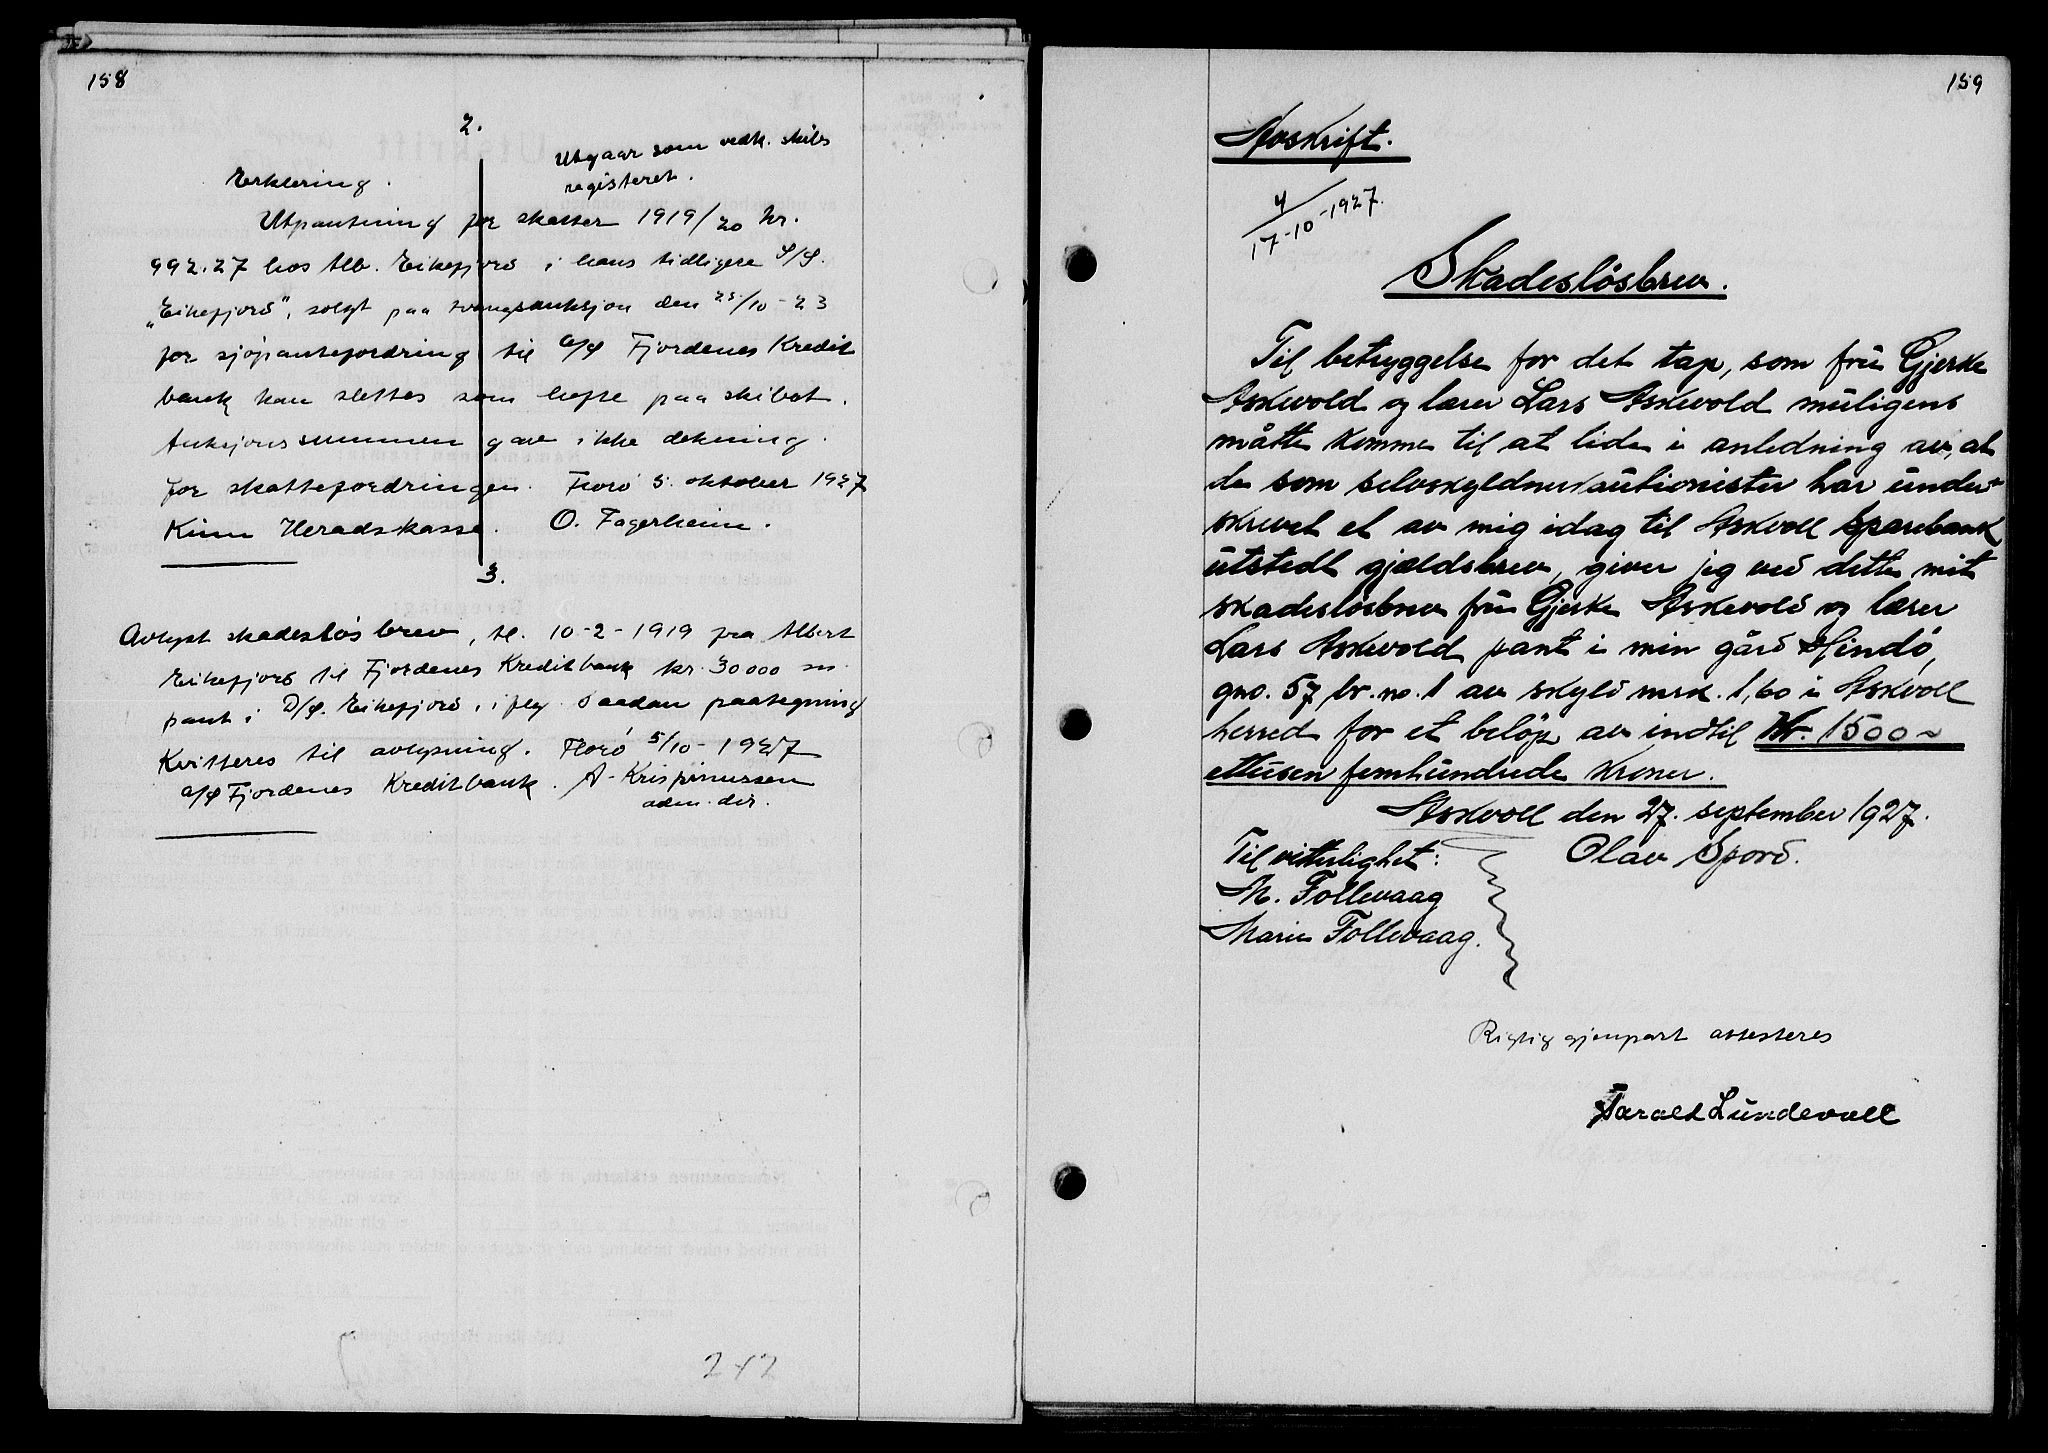 158
2.
Utgaar som vedk. skibs
registeret.
Erklering.
Utpantning for skatter 1919/20 kr.
992.27 hos Alb. Eikefjord i hans tidligere D/S.
"Eikefjord", solgt paa tvangsauksjon den 25/10-23
for sjøpantefordring til A/S Fjordenes Kredit
bank kan slettes som hefte paa skibet.
Auksjonssummen gav ikke dekning
for skattefordringen. Florö 5. oktober 1927
Kinn Heradskasse. O. Fagerheim.
3.
Avlyst skadeslös brev, tl. 10-2-1919 fra Albert
Eikefjord til Fjordenes Kreditbank kr. 30000 m
pant i D/S. Eikefjord, i flg. saadan paategning
Kvitteres til avlysning. Florö 5/10-1927
A/S Fjordenes Kreditbank. A. Krispinussen
adm. dir.
242
159
Avskrift.
4/17-10-1927.
Skadeslösbrev.
Til betryggelse for det tap, som frü Gjerke
Askevold og lærer Lars Askevold müligens
måtte komme til at lide i anledning av, at
de som selvskyldnerkautionister har ünder-
skrevet et av mig idag til Askvoll Sparebank
ütstedt gjældsbrev, giver jeg ved dette mit
skadeslösbrev frü Gjerke Askevold og lærer
Lars Askevold pant i min gård Hindö,
gno. 57, br. no. 1 av skyld mrk. 1,60 i Askvoll
herred for et belöp av indtil Kr. 1500~
ettüsen femhündrede kroner.
Askvoll den 27. september 1927.
Til vitterlighet: Olav Spord.
M. Follevaag
Marie Follevaag.
Rigtig gjenpart attesteres
Harald Lündevall